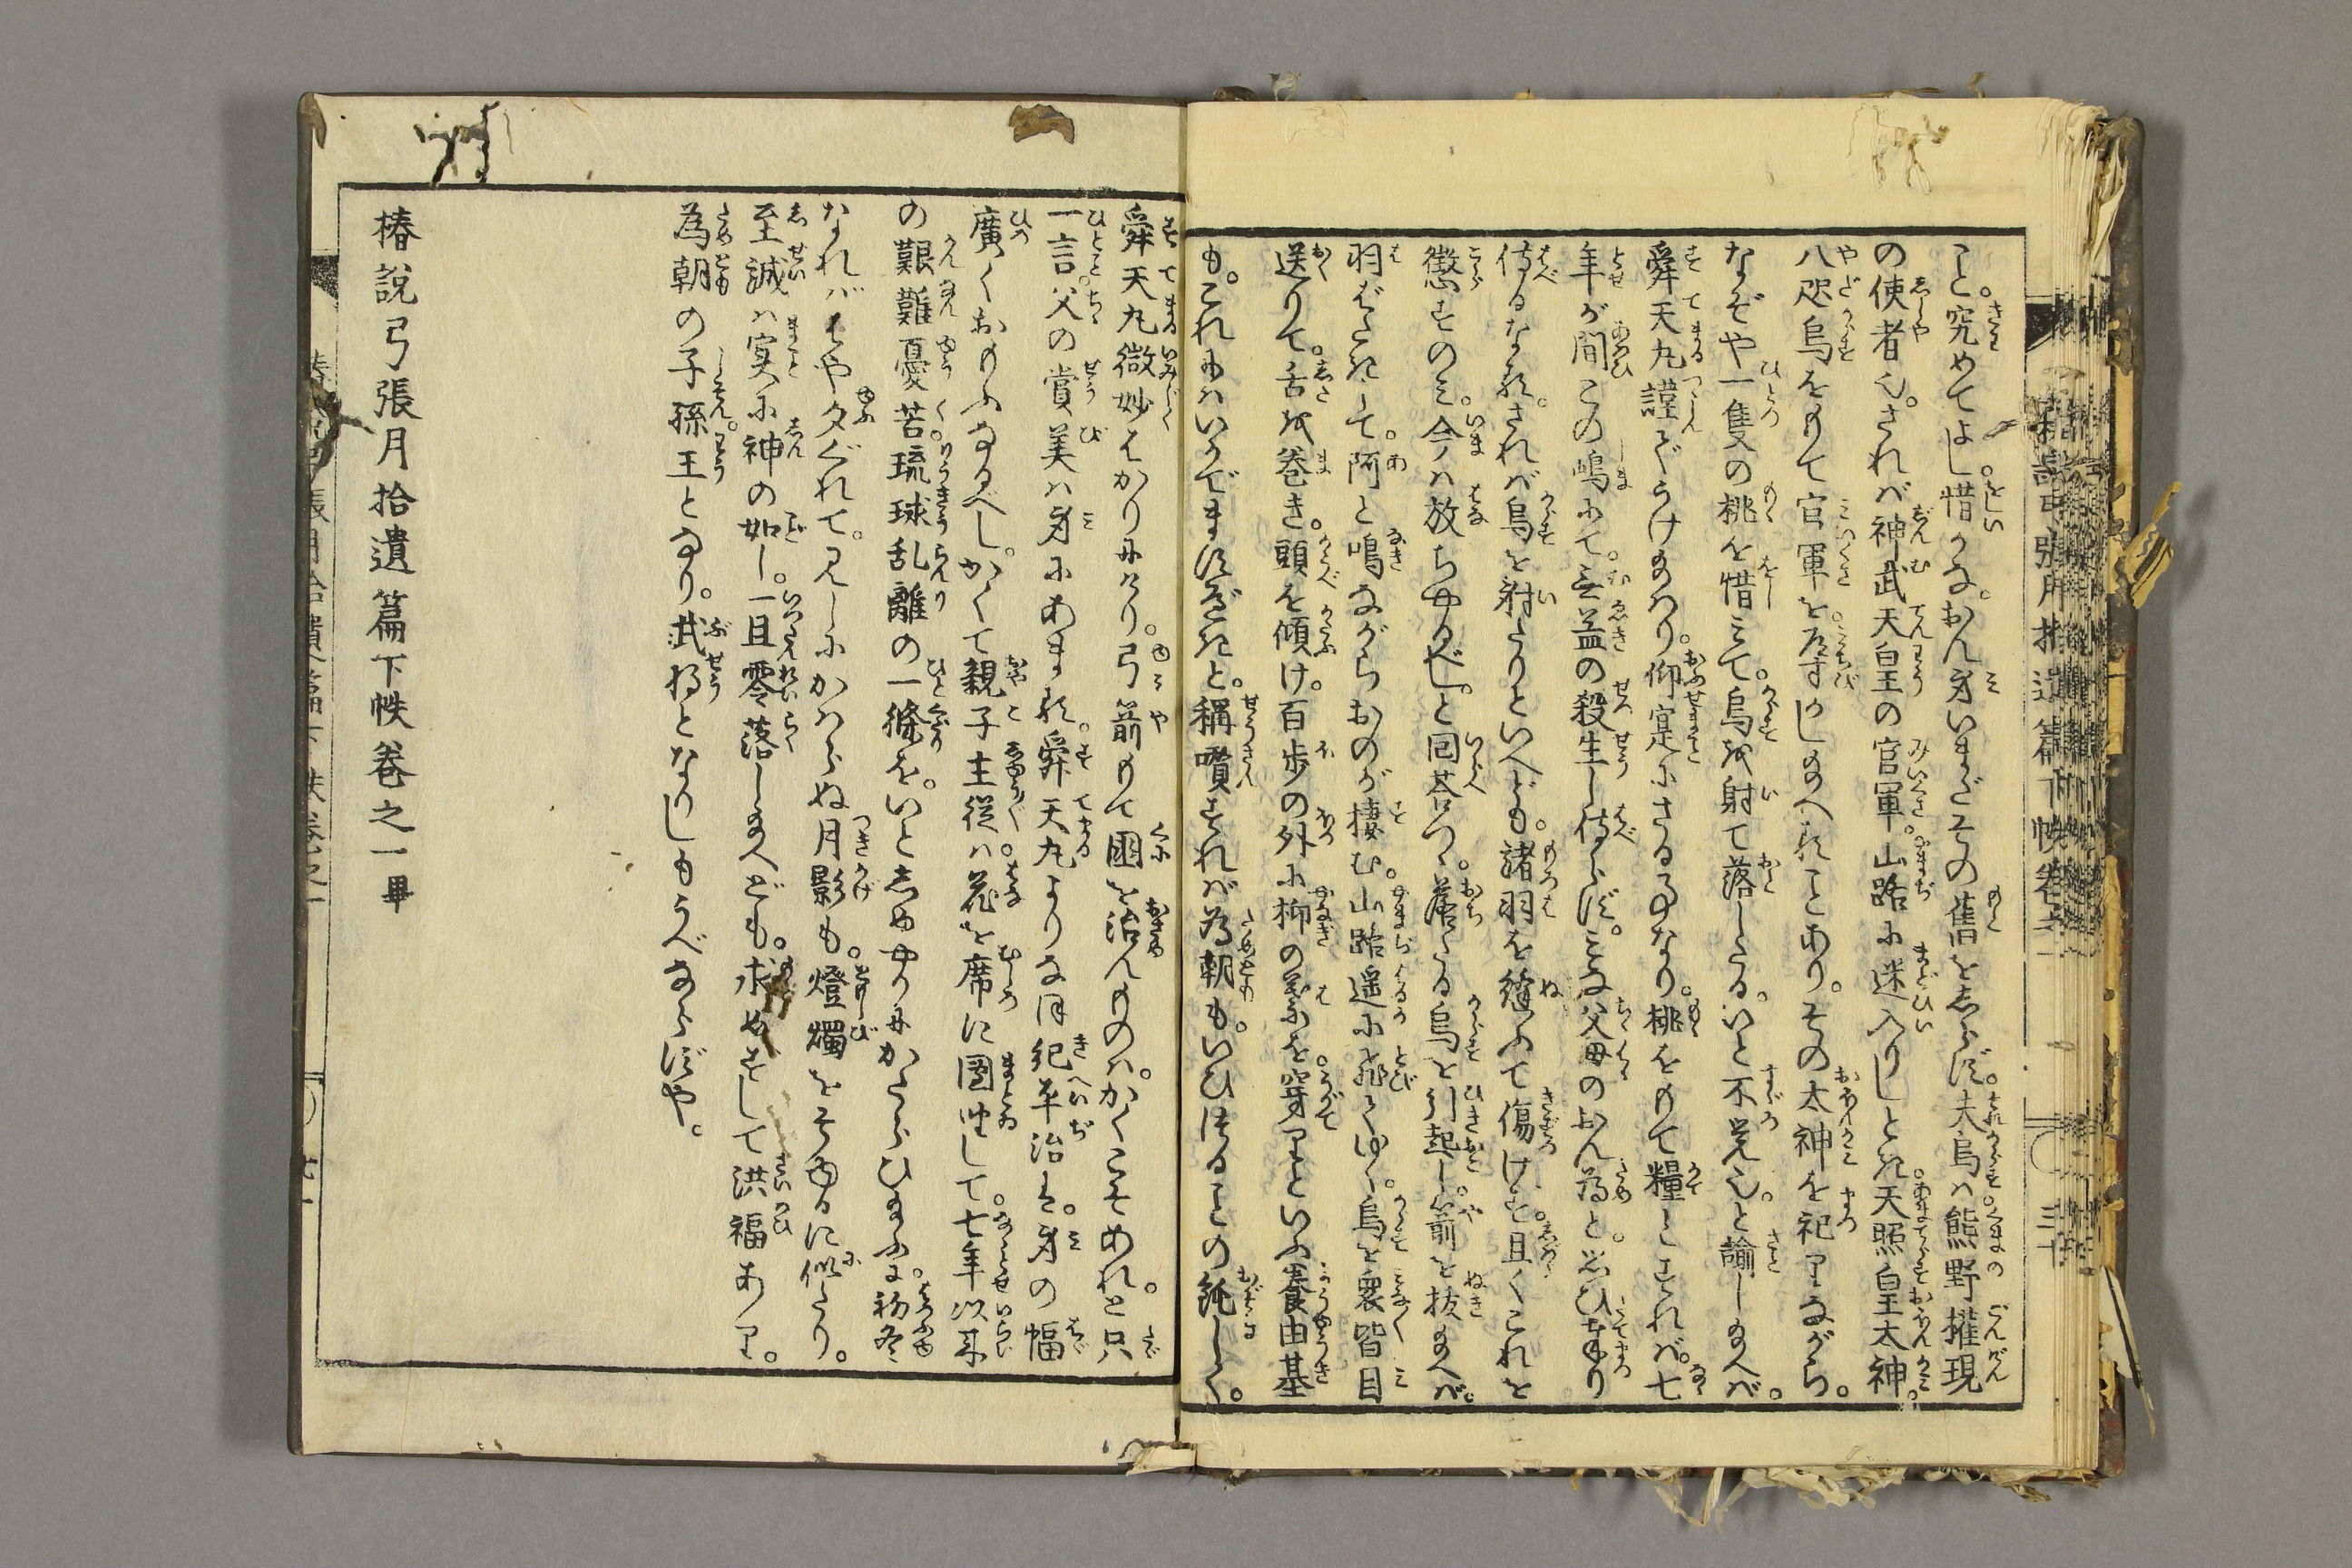 こと。究めてよし。惜いかな。おん身いまだその舊をしらず。夫烏は熊野権現
の使者也。されば神武天皇の官軍。山路に迷入りしとき。天照皇太神。
八咫烏をもて官軍を導かし給へることあり。その太神を祀りながら。
なぞや一隻の桃を惜みて。烏を射て落したる。いと不覚也。と諭し給へば。
舜天丸謹でうけ給はり。仰寔にさる事なり。桃をもて糧とすれば。七
年が間この嶋にて。無益の殺生し侍らず。こは父母のおん為と。思ひ奉り
侍るなる。されば烏を射たりといへども。諸羽を縫ふて傷けず。且くこれを
懲すのみ。今は放ちやるべし。と回荅つゝ。落たる烏を引起し。箭を抜給へば。
羽ばたきして。阿と鳴ながらおのが棲む。山路遥に飛てゆく。烏を衆皆目
送りて。舌を巻き。頭を傾け。百歩の外に柳の葉を。穿りといふ養由基
も。これにはいかでますべきと。稱嘆すれば為朝も。いひけることの鈍しく。
舜天丸微妙はかりにけり。弓箭もて國を治んものは。かくこそあれ。と只
一言。父の賞美は身にあまる。舜天丸よりなほ紀平治は。身の幅
廣くおもふなるべし。かくて親子主従は。花を席に圓坐して。七年以来
の艱難憂苦。琉球乱離の一條を。いとしめやかにかたらひ給ふに。初冬
なればはや夕ぐれて。見しにかはらぬ月影も。燈燭をそゆるに似たり。
至誠は寔に神の如し。一旦零落し給へども。求めずして洪福あり。
為朝の子孫王となり。武将となりしもうべならずや。
椿説弓張月拾遺篇下帙巻之一畢